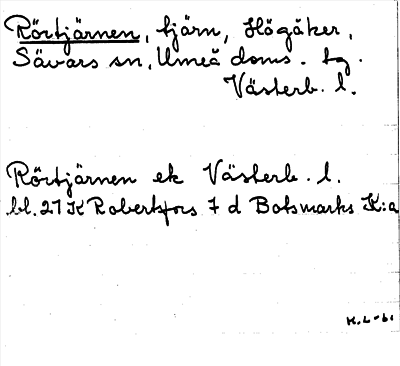 Rörtjärnen, tjärn, Högåker,
Sävars sn, Umeå doms. tg.
Västerb. l.
Rörtjärnen ek Västerb. l.
bl. 21 K Robertsfors 7 d Botsmarks K:a
K.L-61